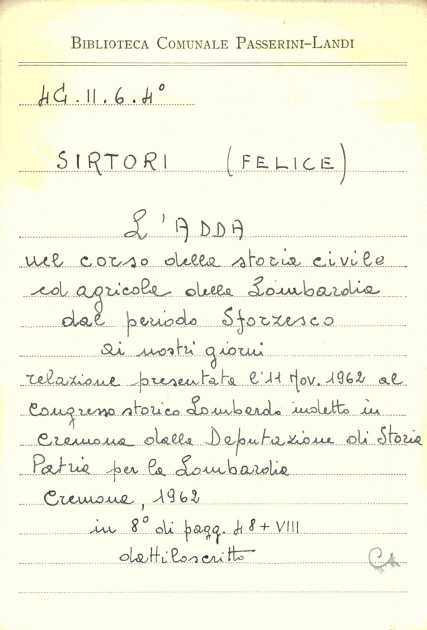 BIBLIOTECA COMUNALE PASSERINI-LANDI
4G.II.6.4°
SIRTORI (FELICE)
L'ADDA
nel corso della storia civile
ed agricola della Lombardia
dal periodo Sforzesco
ai nostri giorni
relazione presentata l'11 Nov. 1962 al
Congresso storico Lombardo indetto in
Cremona dalla Deputazione di Storia
Patria per la Lombardia
Cremona, 1962
in 8° di pagg. 48+VIII
dattiloscritto
CA